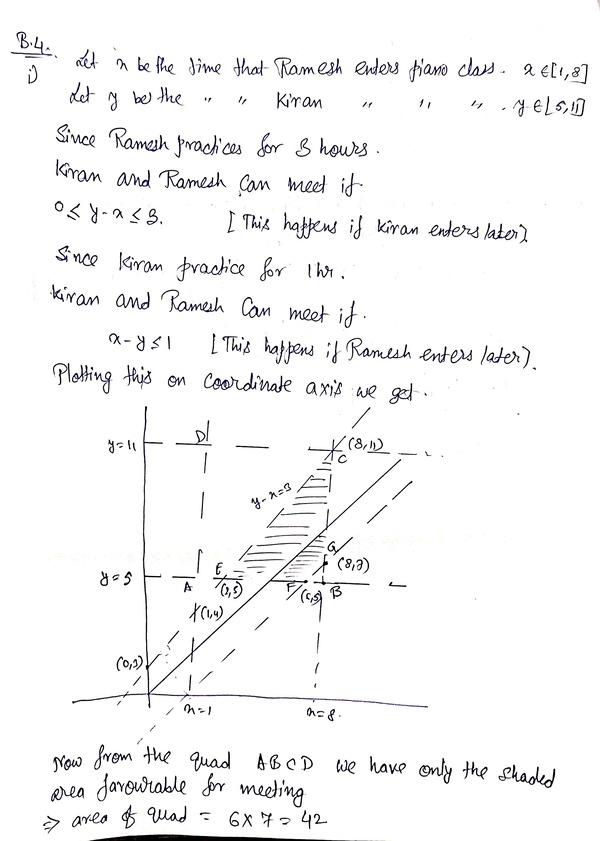 B.4.
i) Let x be the time that Ramesh enters piano class. x ∈ [1,8]
Let y be the " " Kiran " " " . y ∈ [5,11]
Since Ramesh practices for 3 hours.
Kiran and Ramesh can meet if
0 ≤ y-x ≤ 3. [This happens if Kiran enters later]
Since Kiran practice for 1hr.
Kiran and Ramesh can meet if.
x-y ≤ 1 [This happens if Ramesh enters later].
Plotting this on coordinate axis we get.
y=11 D (8,11)
C
y-x=3
G
(8,7)
y=5 A E (2,5) F (6,5) B
(1,4)
(0,3)
x=1 x=8.
Now from the quad ABCD we have only the shaded
area favourable for meeting
⇒ area of quad = 6x7 = 42